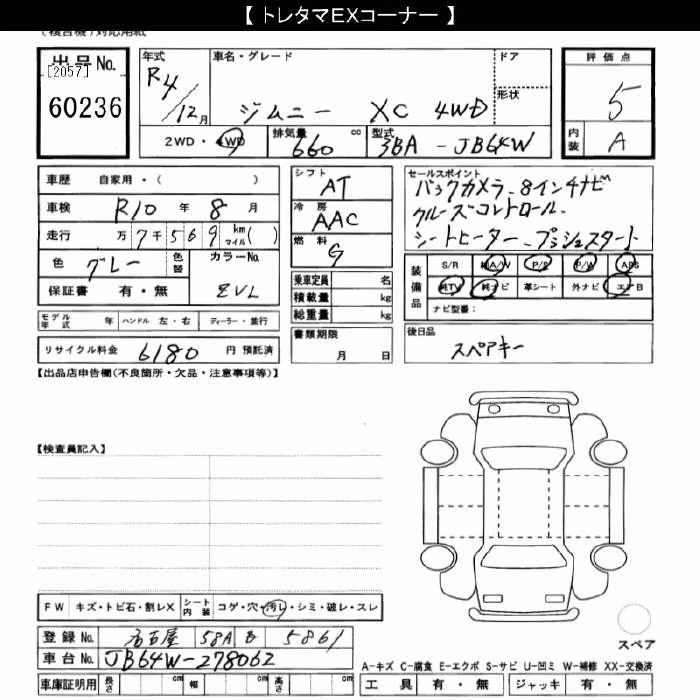 【 トレタマEXコーナー 】
出品No.
[2057]
60236
年式
R4/12月
車名・グレード
ジムニー XC 4WD
ドア
形状
評価点
5
内装 A
2WD・4WD
排気量 660 cc
型式 3BA - JB64W
車歴 自家用・( )
車検 R10 年 8 月
走行 万 7 千 5 6 9 km マイル ( )
色 グレー 色替
カラーNo. ZVL
保証書 有・無
モデル年式 年 ハンドル 左・右 ディーラー・並行
リサイクル料金 6180 円 預託済
シフト AT
冷房 AAC
燃料 G
乗車定員 名
積載量 kg
総重量 kg
書類期限
月 日
セールスポイント
バックカメラ、8インチナビ
クルーズコントロール、
シートヒーター、プッシュスタート
装備品
S/R 純A/W P/S P/W ABS
純TV 純ナビ 革シート 外ナビ エアB
ナビ型番:
後日品
スペアキー
【出品店申告欄(不良箇所・欠品・注意事項等)】
【検査員記入】
FW キズ・トビ石・割レX シート内装 コゲ・穴・汚レ・シミ・破レ・スレ
登録No. 名古屋 58A 5861
車台No. JB64W-278062
車庫証明用 長さ cm 幅 cm 高さ cm
スペア
A-キズ C-腐食 E-エクボ S-サビ U-凹ミ W-補修 XX-交換済
工具 有・無 ジャッキ 有・無